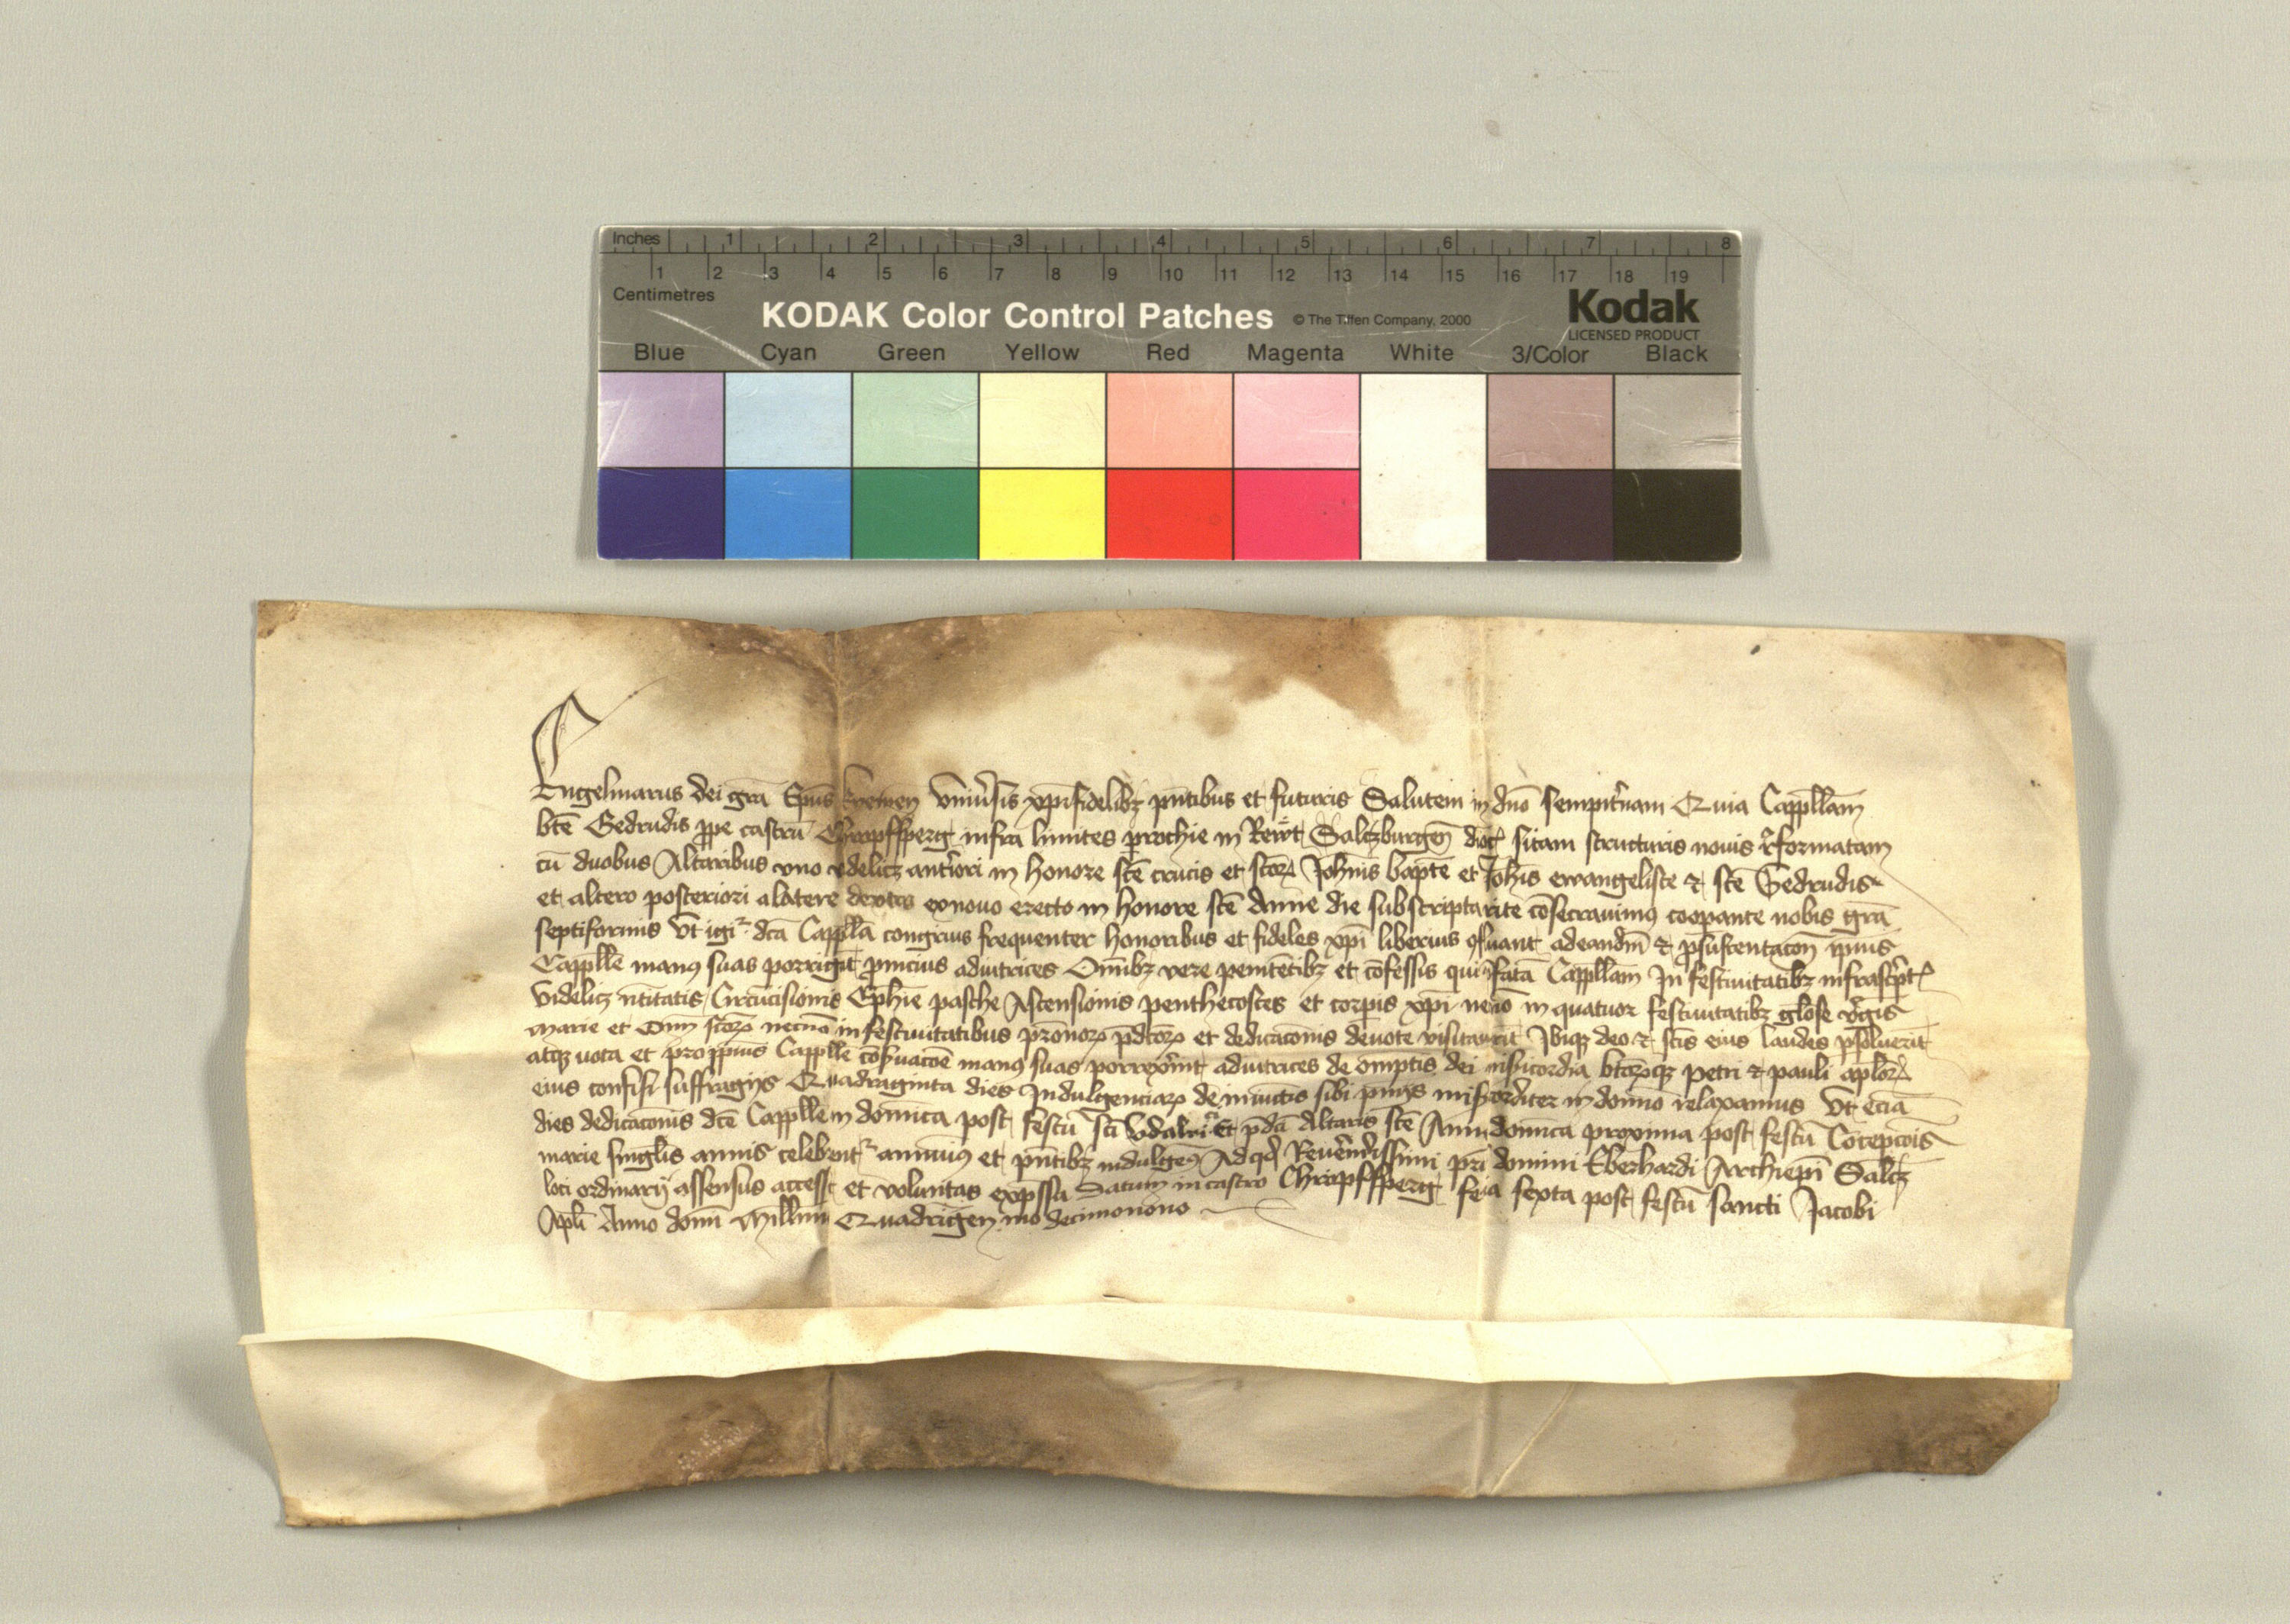 Inches 1 2 3 4 5 6 7 8
1 2 3 4 5 6 7 8 9 10 11 12 13 14 15 16 17 18 19
Centimetres
KODAK Color Control Patches © The Tiffen Company, 2000 Kodak
LICENSED PRODUCT
Blue Cyan Green Yellow Red Magenta White 3/Color Black
Engelmarus dei grā Ep̄us Uniu̓sis xp̄ifidelibꝫ pn̄tibus et futuris Salutem in dn̄o sempit̓nam Quia Cappll̄am
bt̄e Gedrudis ꝓpe castrū Chropffsperg infra limites ꝑrochie in Rewt Saltzburgen̄ dioc̄ sitam structuris nouis r̓formatam
cū duobus Altaribus vno vdelicꝫ ant̓iori in honore st̄e crucis et sc̄orꝝ Joh̄nis bapt̄e et Joh̄is ewangeliste ⁊ st̄e Gedrudis
et altero posteriori alatere dextro exnouo erecto in honore st̄e Anne die subscripta rite cōsecrauimꝰ coopante nobis grā
septiformis Ut igiᵗ dc̄a Cappll̄a congruis frequentet̓ honoribus et fideles xp̄i liberius ꝯfluant adeandm̄ ⁊ ꝓ sustentacōn̄ ip̄ius
Cappll̄e manꝰ suas porrigāt ꝓmcius adiutrices Om̄ibꝫ vere penitētibꝫ et cōfessis qui p̄fatā Cappll̄am In festiuitatibꝫ infrasc̓ptꝭ
Videlicꝫ n̄titatis Circūcisionis Eph̄ie pasche Ascensionis penthecostes et corpis xp̄i necnō in quatuor festiuitatibꝫ glōse v̓gīs
Marie et Om̄ sc̄orꝝ necnō in festiuitatibus pr̄onorꝝ p̄dc̄orꝝ et dedicacōnis deuote visitauerīt Ibiqꝫ deo ⁊ sc̄is eius laudes ꝑsoluerīt
atqꝫ uota et pro ip̄ius Cappll̄e cōs̓uacōe manꝰ suas porrex̓int adiutrices de om̄ptis dei mis̓icordia bt̄orꝝqꝫ Petri ⁊ pauli apl̄orꝝ
eius confisi suffragijs Quadraginta dies Indulgenciarꝝ de iniunctis sibi pn̄ijs mis̓icorditer in domīo relaxamus Ut eciā
dies dedicacōnis dc̄e Cappll̄e in domīca post festū sc̄i Vdalrici Et p̄dc̄i Altaris st̄e Anne domīca proxima post festū Cōcepcōis
marie singl̄is annis celebrentᵗ annuimꝰ et pn̄tibꝫ indulgemꝰ Ad qd̄ Reuerendissimi pr̄i domini Eberhardi Archiep̄i Saltꝫ
loci ordinarij assensus accessit et voluntas exp̄ssa Datum in castro Chropffsperg feīa sexta post festū sancti Jacobi
Apl̄i Anno domī Mill̄mo Quadringen̄ mo decimonono